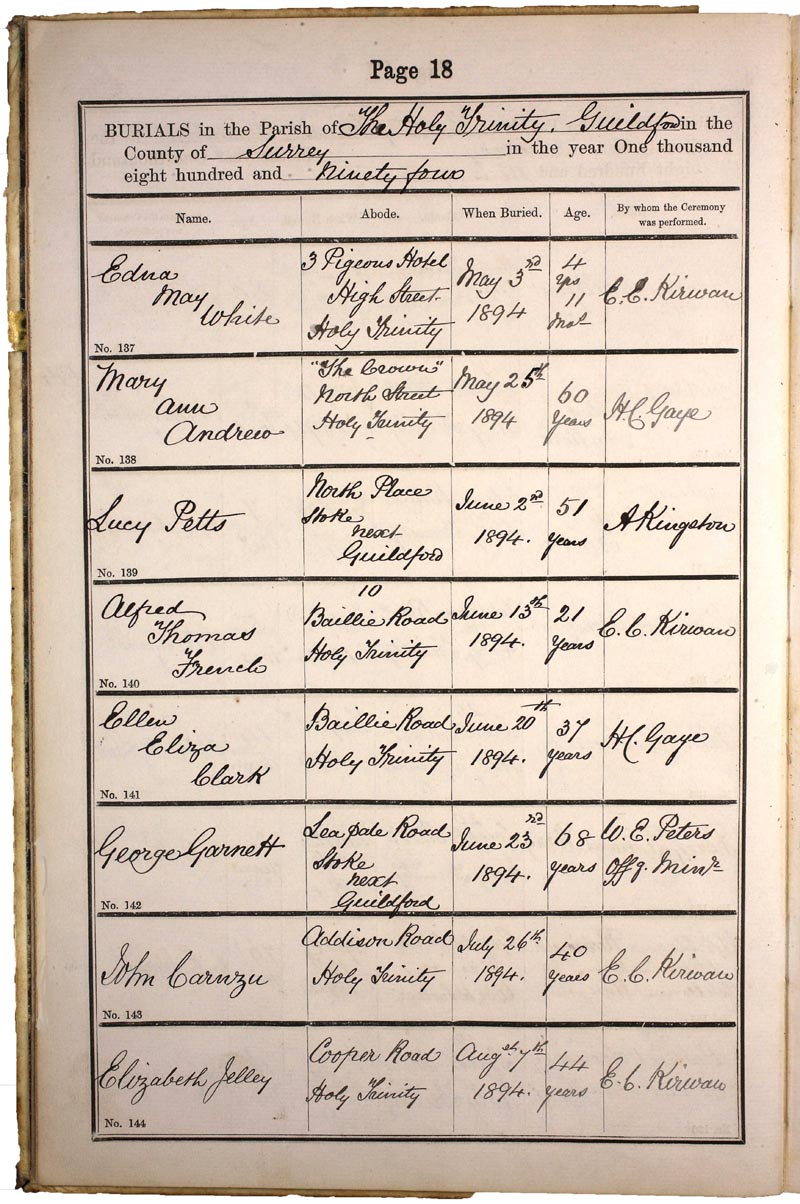 Page 18
BURIALS in the Parish of The Holy Trinity, Guildford in the
County of Surrey in the year One thousand
eight hundred and Ninety four
Name. Abode. When Buried. Age. By whom the Ceremony was performed.
Edna
May
White
No. 137
3 Pigeons Hotel
High Street
Holy Trinity
May 3rd
1894
4
yrs
11
mos
E. C. Kirwan
Mary
Ann
Andrew
No. 138
"The Crown"
North Street
Holy Trinity
May 25th
1894
60
years
H.C. Gaye
Lucy Petts
No. 139
North Place
Stoke
next
Guildford
June 2nd
1894.
51
years
A Kingston
Alfred
Thomas
French
No. 140
10
Baillie Road
Holy Trinity
June 13th
1894.
21
years
E. C. Kirwan
Ellen
Eliza
Clark
No. 141
Baillie Road
Holy Trinity
June 20th
1894.
37
years
H.C. Gaye
George Garnett
No. 142
Leapale Road
Stoke
next
Guildford
June 23rd
1894.
68
years
W. E. Peters
Offg. Minr
John
No. 143
Addison Road
Holy Trinity
July 26th
1894.
40
years
E. C. Kirwan
Elizabeth Jelley
No. 144
Cooper Road
Holy Trinity
Augst 7th
1894.
44
years
E. C. Kirwan